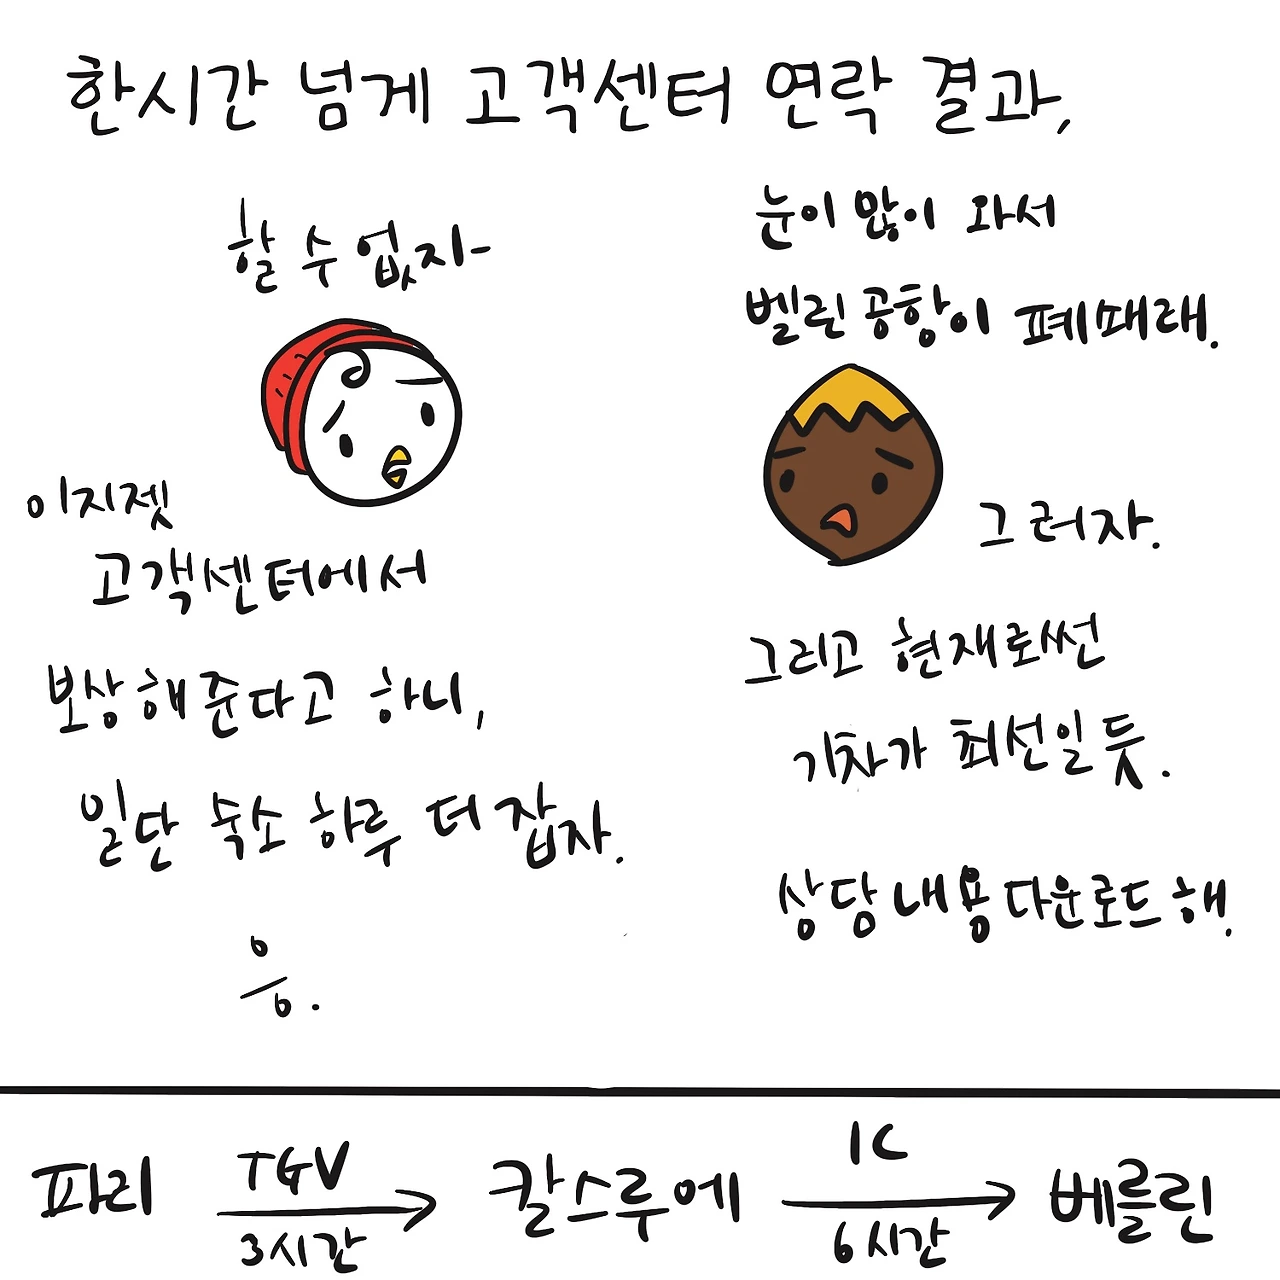 한시간 넘게 고객센터 연락 결과,
눈이 많이 와서
벨린 공항이 폐쇄래.
할 수 없지-
그러자.
이지젯
고객센터에서
보상해준다고 하니,
일단 숙소 하루 더 잡자.
그리고 현재로썬
기차가 최선일 듯.
상담내용 다운로드 해.
응.
파리 TGV 3시간 칼스루에 IC 6시간 베를린